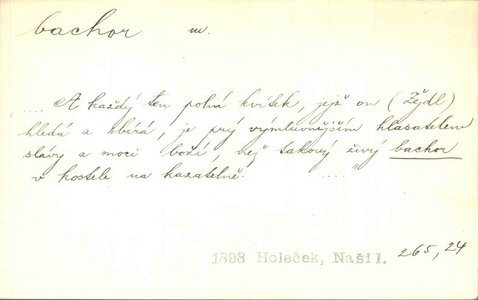 bachor m.
.... A každý ten polní kvítek, jejž on (Žejdl)
hledá a sbírá, je prý výmluvnějším hlasatelem
slávy a moci boží, než takový živý bachor
v kostele na kazatelně. ....
1898 Holeček, Naši I. 265,24